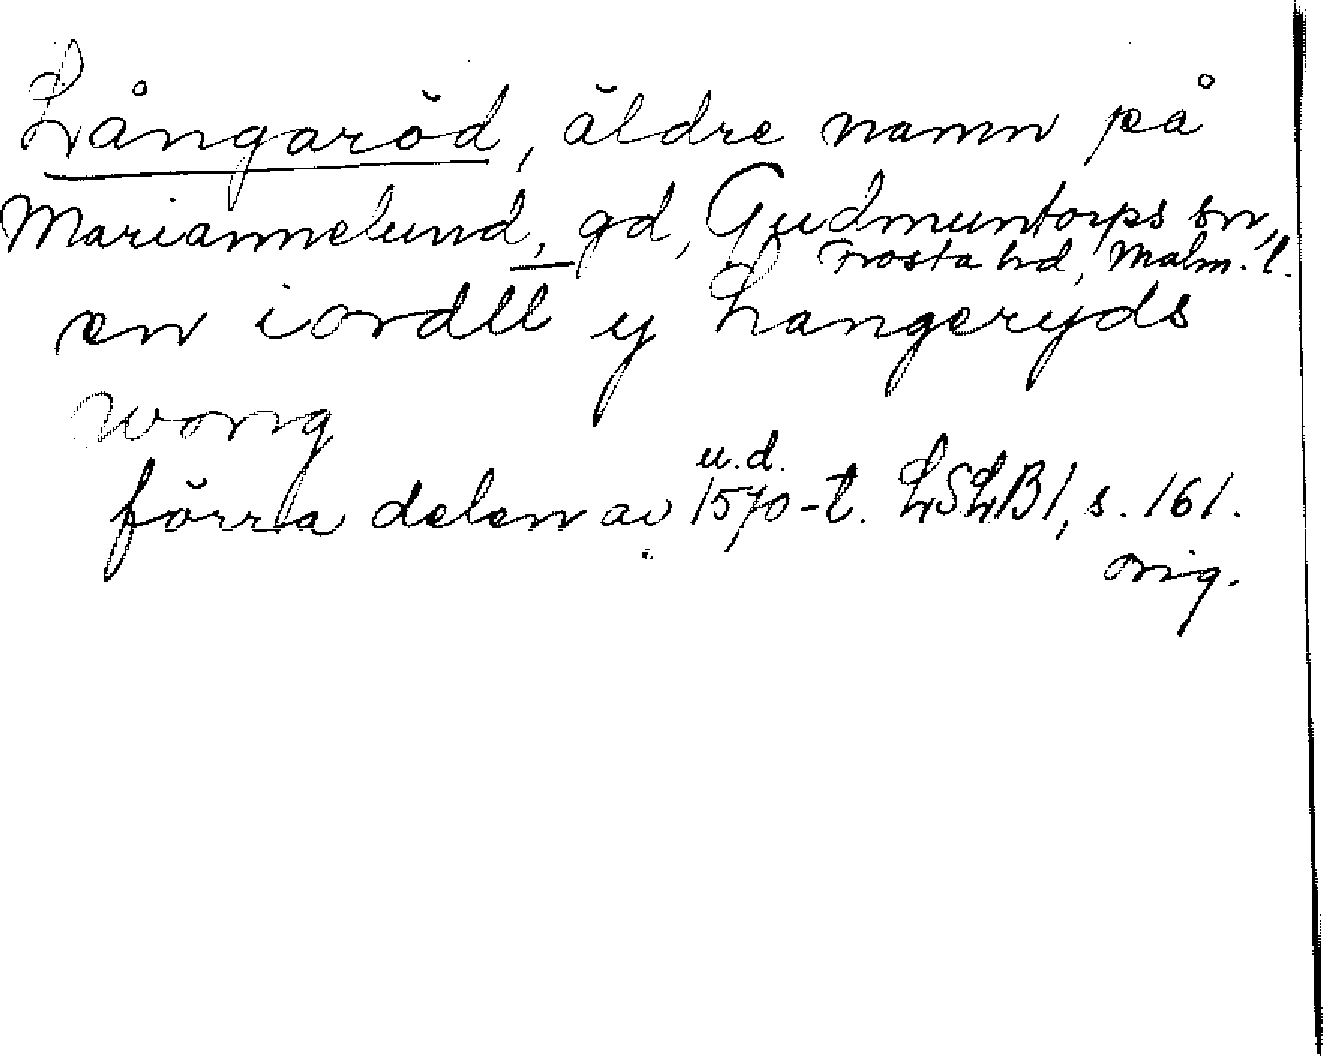 Långaröd, äldre namn på
Mariannelund, gd, Gudmuntorps sn,
Frosta hd, Malm. l.
en iordll y Langeryds
wong
förra delen av 1570-t. LSLB1, s. 161.
u.d.
orig.